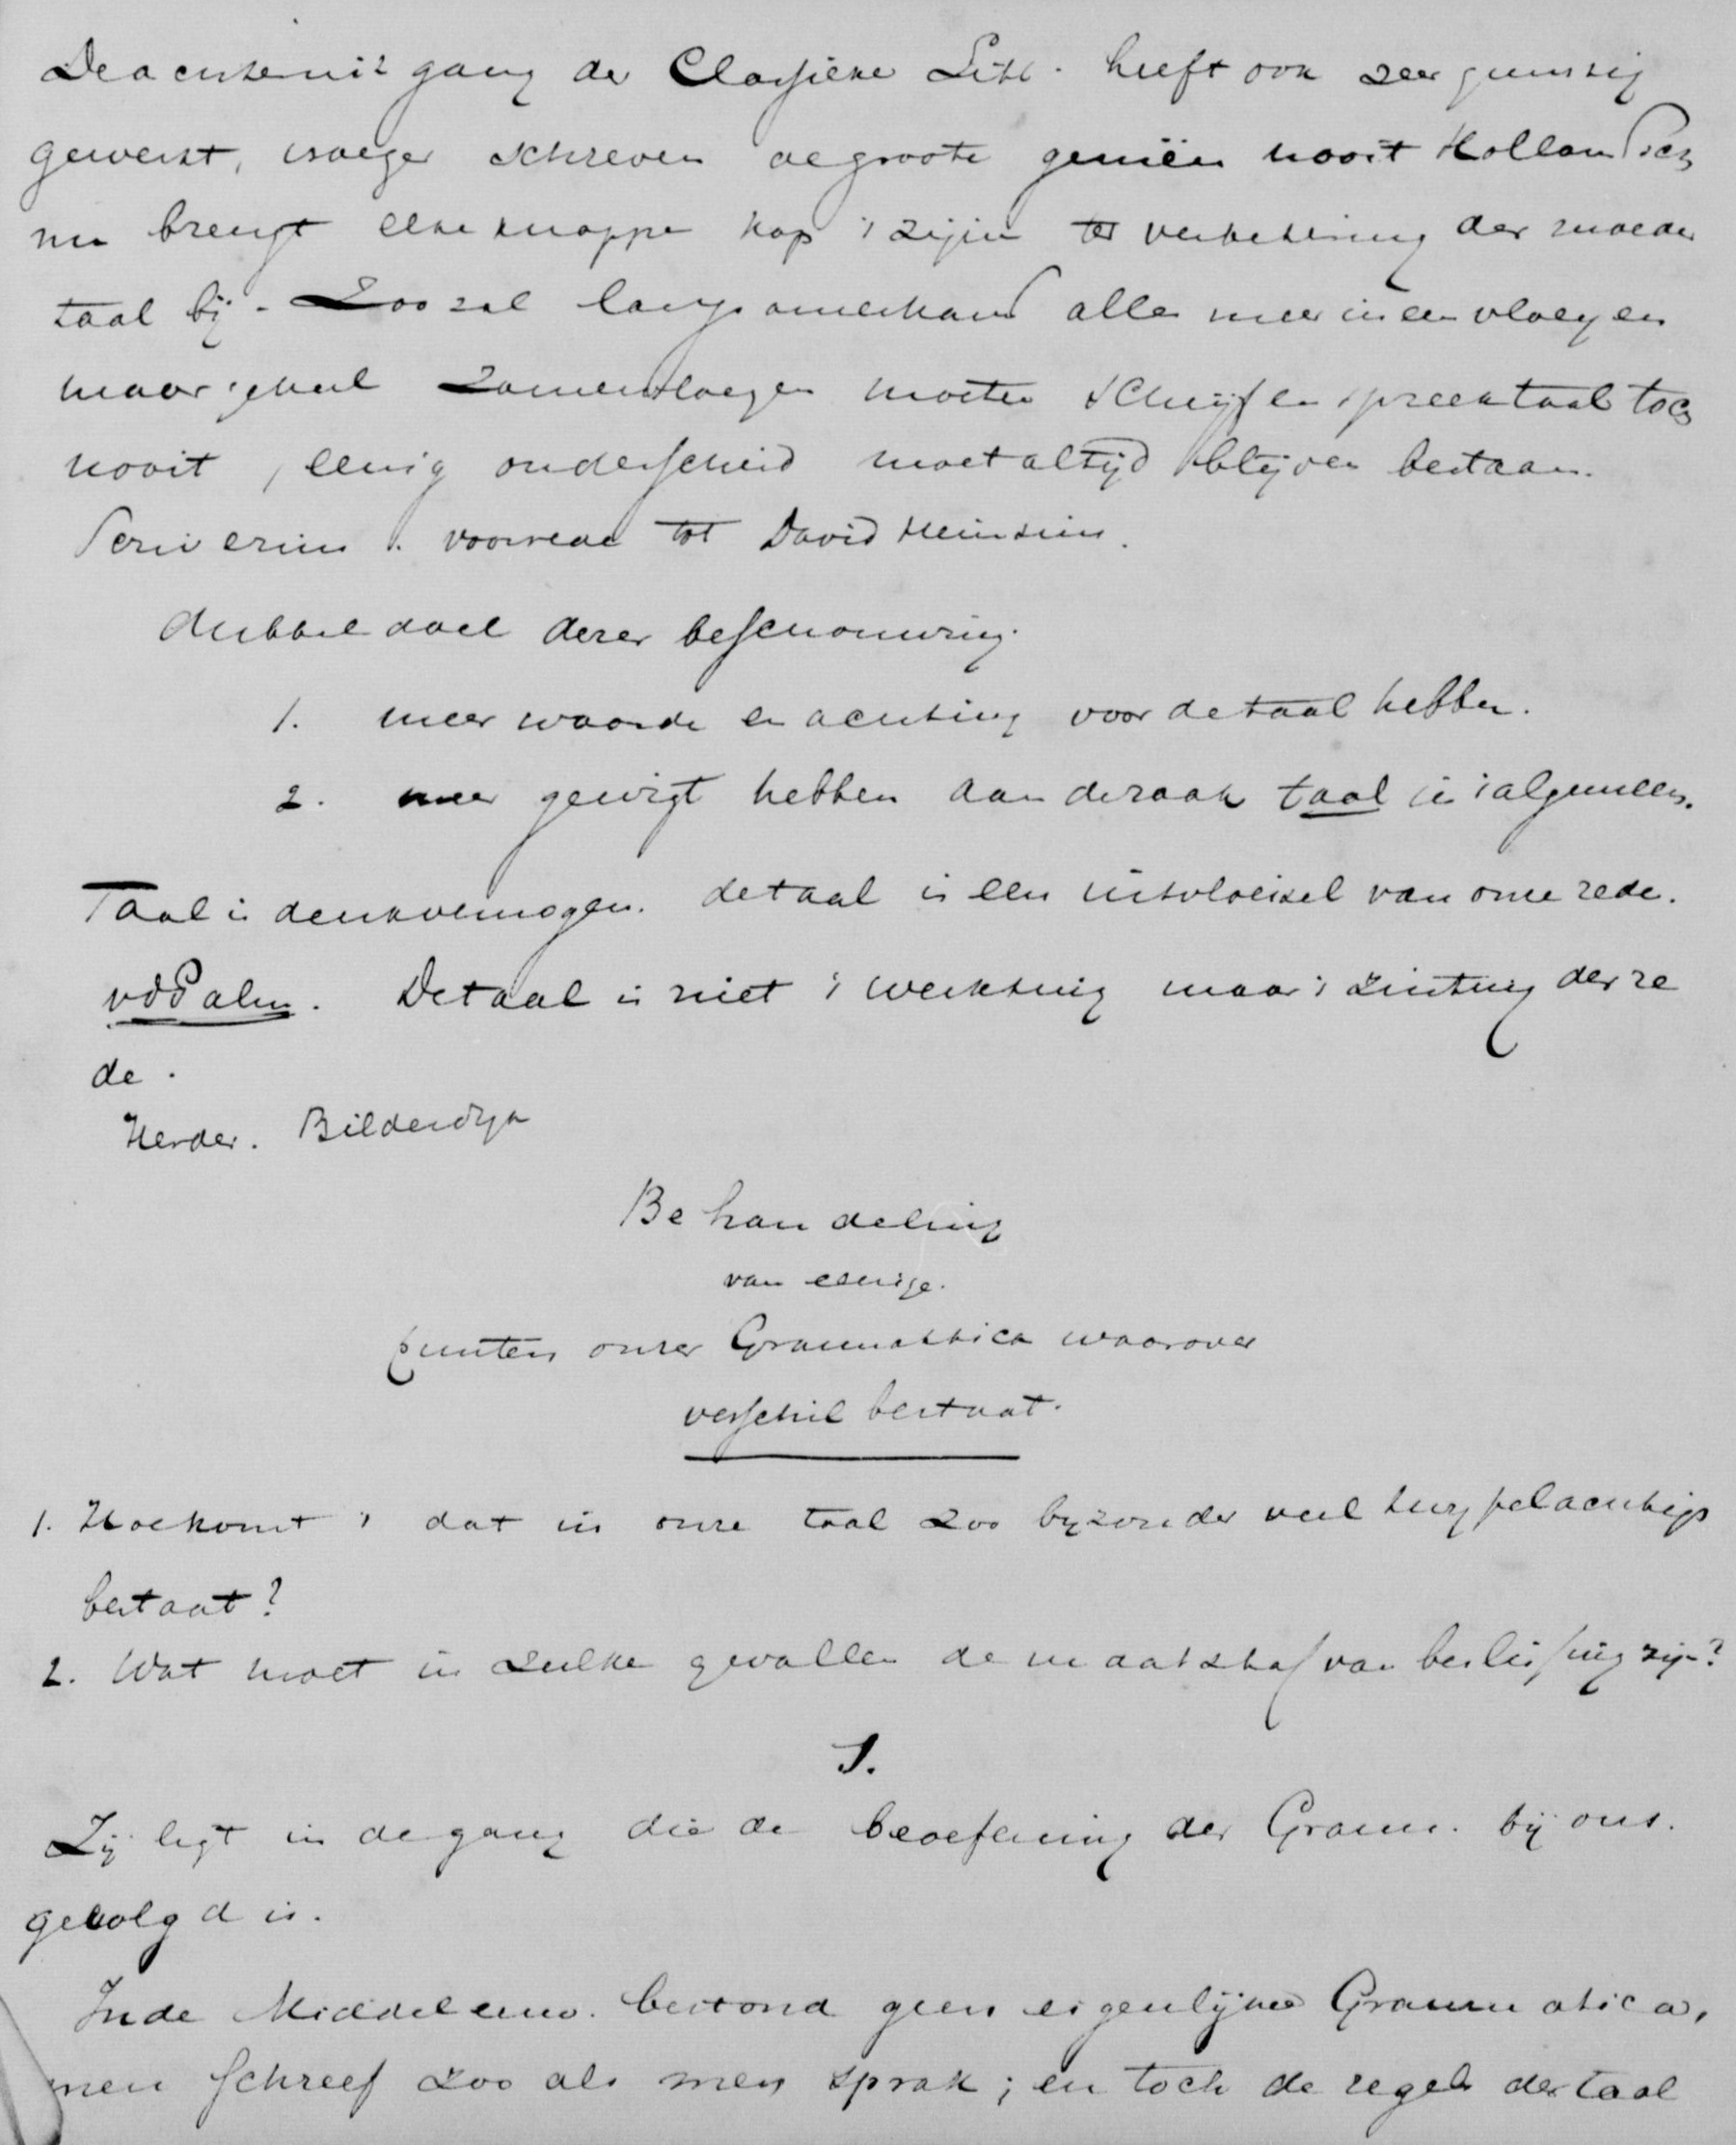 De achteruitgang der Classieke Litt. heeft ook zeer gunstig
gewerkt, vroeger schreven de groote genieën nooit Hollandsch
nu brengt elke knappe kop 't zijne ter verbetering der moeder
taal bij. Zoo zal langzamerhand alles meer ineen vloeyen
maar geheel zamenvloeyen moeten schrijf en spreektaal toch
nooit, eenig onderscheid moet altijd blijven bestaan.
Scriverius voorrede tot David Heinsius.
dubbel doel dezer beschouwing.
1. meer waarde en achting voor de taal hebben.
2. meer gewigt hebben aan de zaak taal in 't algemeen.
Taal is denkvermogen. de taal is een uitvloeisel van onze rede.
vdPalm. De taal is niet 't werktuig maar 't zintuig der re
de.
Herder. Bilderdijk
Behandeling
van eenige.
punten onzer Grammattica waarover
verschil bestaat.
1. Hoe komt 't dat in onze taal zoo byzonder veel twyfelachtigs
bestaat?
2. Wat moet in zulke gevallen de maatstaf van beslissing zijn?
1.
Zij ligt in de gang die de beoefening der Gramm. bij ons.
gevolgd is.
In de Middeleeuw. bestond geen eigenlijke Grammatica,
men schreef zoo als men sprak; en toch de regels der taal